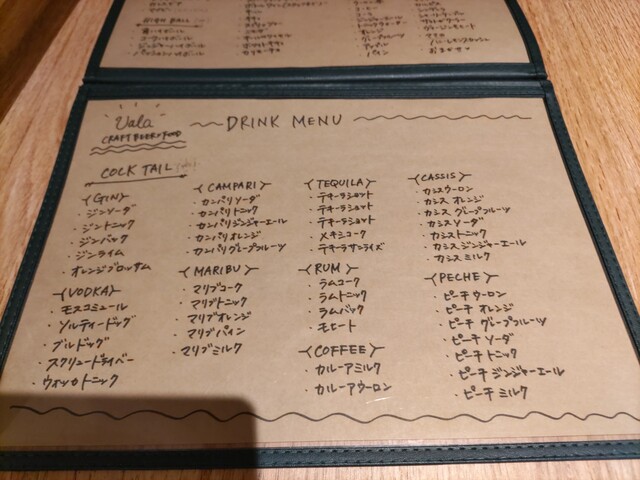 HIGH BALL
Vala
CRAFT BEER & FOOD
DRINK MENU
COCK TAIL
GIN
・ジンソーダ
・ジントニック
・ジンバック
・ジンライム
・オレンジブロッサム
VODKA
・モスコミュール
・ソルティードッグ
・ブルドッグ
・スクリュードライバー
・ウォッカトニック
CAMPARI
・カンパリソーダ
・カンパリトニック
・カンパリジンジャーエール
・カンパリオレンジ
・カンパリグレープフルーツ
MARIBU
・マリブコーク
・マリブトニック
・マリブオレンジ
・マリブパイン
・マリブミルク
TEQUILA
・テキーラショット
・テキーラショット
・テキーラショット
・メキシコーク
・テキーラサンライズ
RUM
・ラムコーク
・ラムトニック
・ラムバック
・モヒート
COFFEE
・カルーアミルク
・カルーアウーロン
CASSIS
・カシスウーロン
・カシス オレンジ
・カシス グレープフルーツ
・カシス ソーダ
・カシストニック
・カシス ジンジャーエール
・カシス ミルク
PECHE
・ピーチ ウーロン
・ピーチ オレンジ
・ピーチ グレープフルーツ
・ピーチ ソーダ
・ピーチ トニック
・ピーチ ジンジャーエール
・ピーチ ミルク